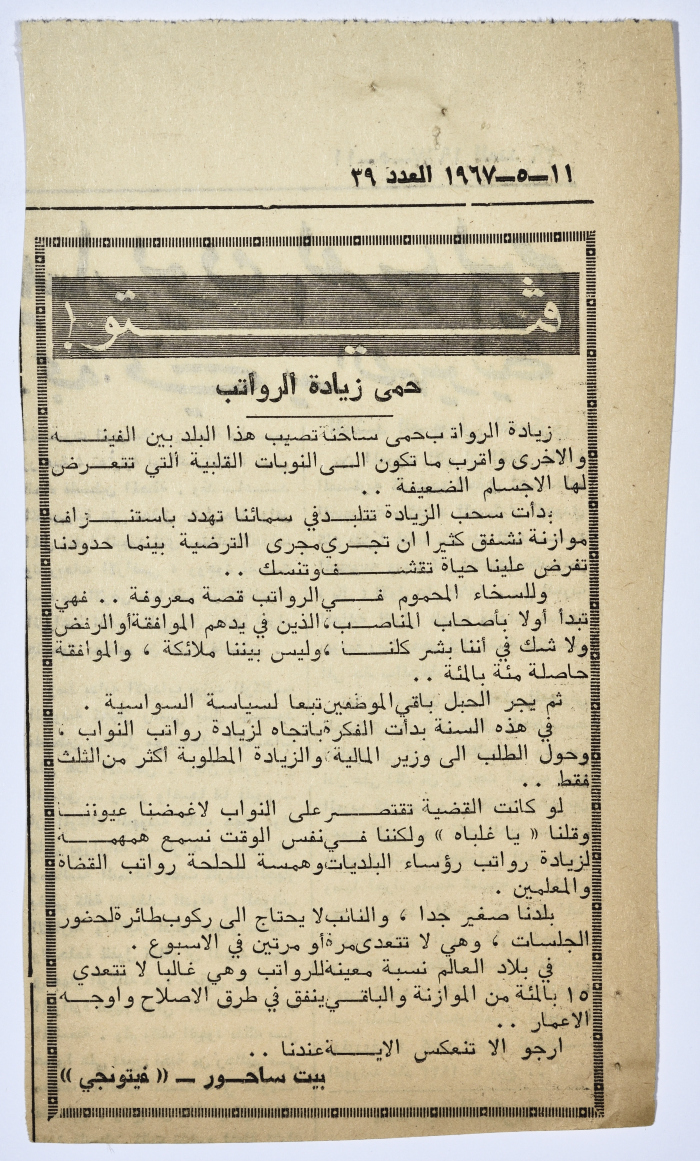 ١١ــ٥ــ١٩٦٧ العدد ٣٩
ڤيتو !
حمى زيادة الرواتب
زيادة الرواتب حمى ساخنة تصيب هذا البلد بين الفينـــه
والاخرى واقرب ما تكون الــى النوبات القلبية ألتي تتعــرض
لها الاجسام الضعيفة . .
بدأت سحب الزيادة تتلبــد في سمائنا تهدد باستنــزاف
موازنة نشفق كثيرا ان تجــري مجرى الترضية بينما حدودنا
تفرض علينا حياة تقشــــف وتنسك . .
وللسخاء المحموم فــــي الرواتب قصة معروفة . . فهي
تبدأ أولا بأصحاب المناصــب ، الذين في يدهم الموافقة أو الرفض
ولا شك في أننا بشر كلنــــا ، وليس بيننا ملائكة ، والموافقة
حاصلة مئة بالمئة . .
ثم يجر الحبل باقي الموظفين تبعا لسياسة السواسية .
في هذه السنة بدأت الفكرة باتجاه لزيادة رواتب النواب ،
وحول الطلب الى وزير المالية والزيادة المطلوبة اكثر من الثلث
فقط . .
لو كانت القضية تقتصـــر على النواب لاغمضنا عيوننــا
وقلنا « يا غلباه » ولكننا فــي نفس الوقت نسمع همهمـــة
لزيادة رواتب رؤساء البلديات وهمسة للحلحة رواتب القضاة
والمعلمين .
بلدنا صغير جدا ، والنائب لا يحتاج الى ركوب طائرة لحضور
الجلسات ، وهي لا تتعدى مرة أو مرتين في الاسبوع .
في بلاد العالم نسبة معينة للرواتب وهي غالبا لا تتعدي
١٥ بالمئة من الموازنة والباقــي ينفق في طرق الاصلاح واوجــه
الاعمار . .
ارجو الا تنعكس الايــــة عندنا . .
بيت ساحــور ــ (( فيتونجي ))